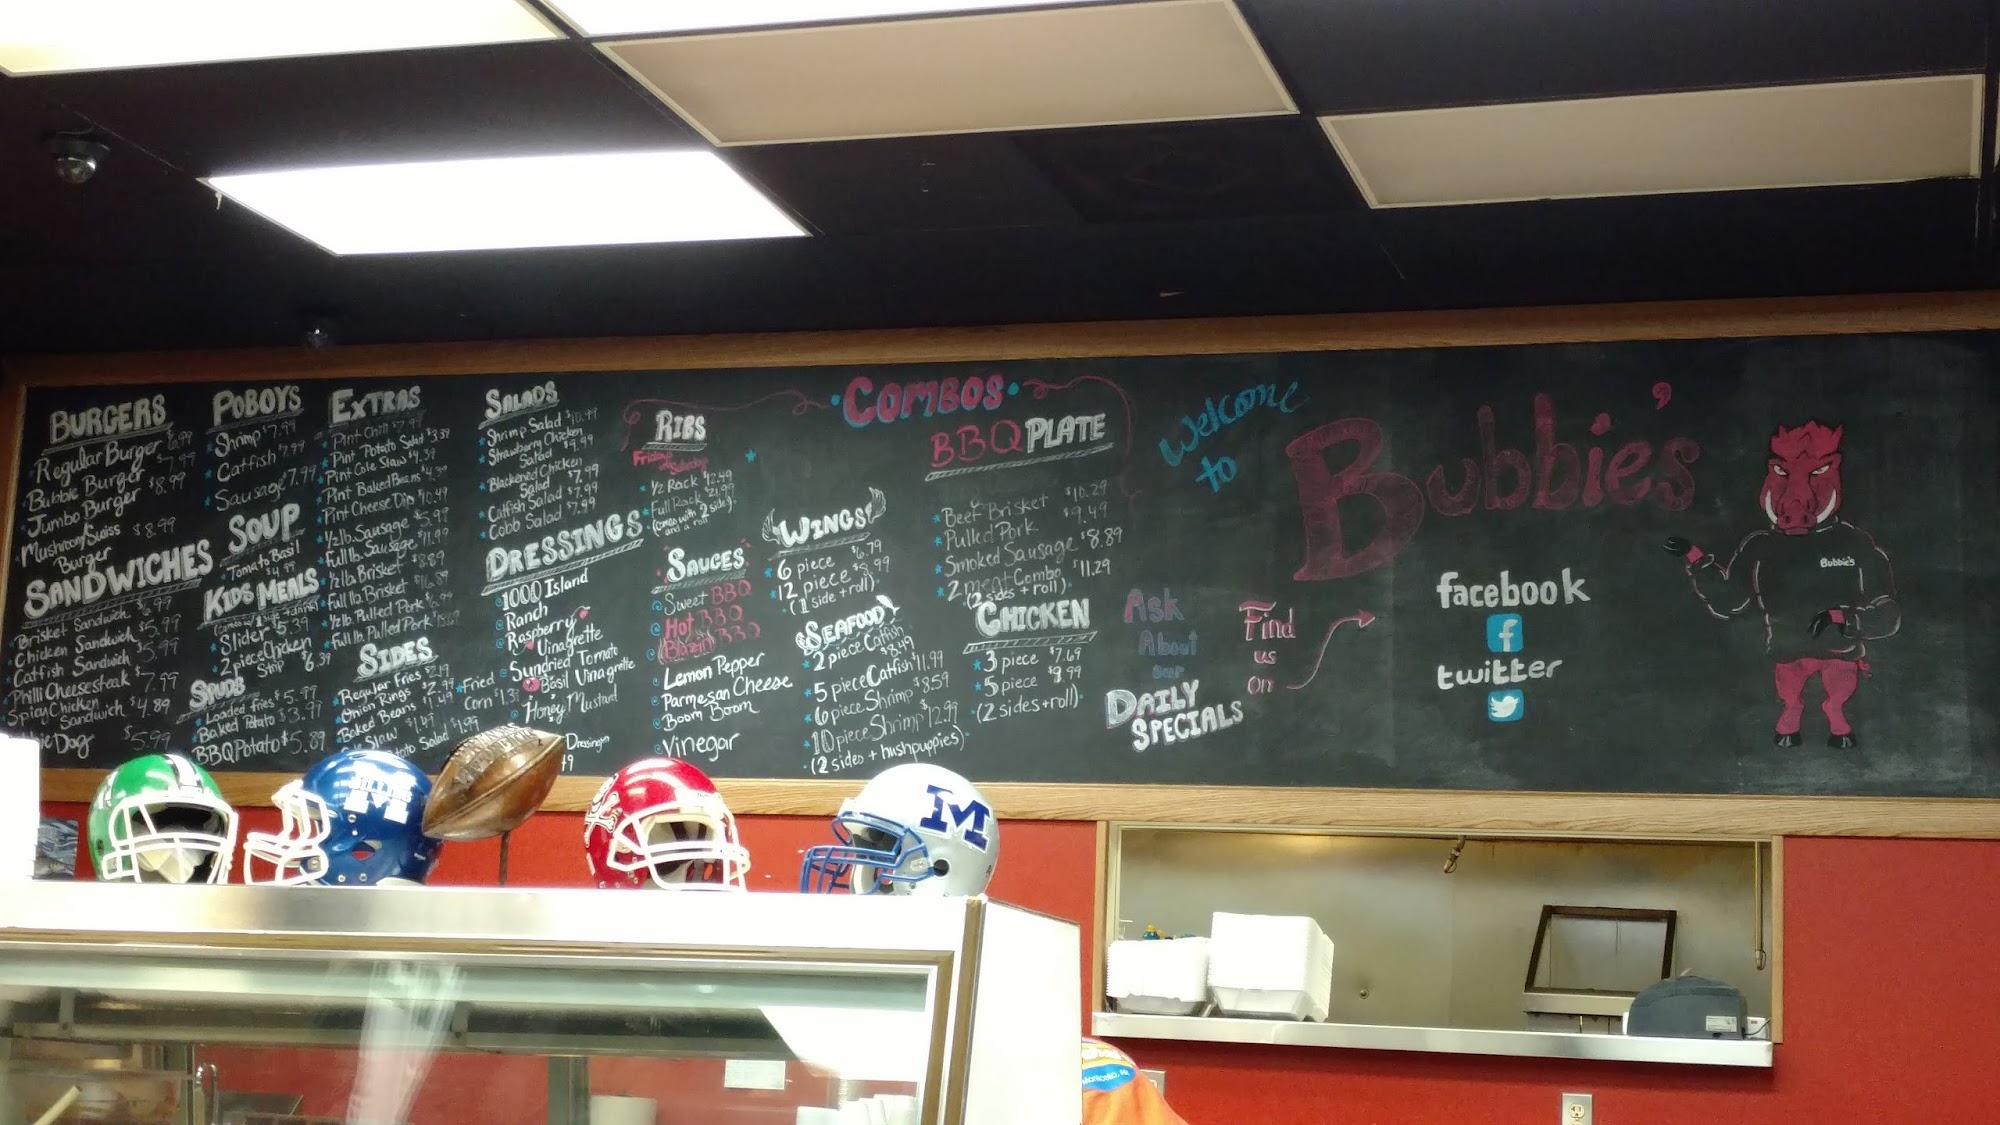 BURGERS
Regular Burger 6.99
Bubbie Burger $7.99
Jumbo Burger $8.99
Mushroom/Swiss $8.99
Burger
SANDWICHES
Brisket Sandwich $6.99
Chicken Sandwich $5.99
Catfish Sandwich $5.99
Philli Cheesesteak $7.99
Spicy Chicken
Sandwich $4.89
Dog $5.99
POBOYS
Shrimp $7.99
Catfish $7.99
Sausage 7.99
SOUP
Tomato Basil
$4.99
KIDS MEALS
Slider $5.39
2 piece Chicken
Strip $6.39
SPUDS
Loaded Fries $5.99
Baked Potato $3.97
BBQ Potato $5.89
EXTRAS
Pint Chili $7.99
Pint Potato Salad $3.39
Pint Cole Slaw $4.39
Pint Baked Beans $4.39
Pint Cheese Dip $10.49
1/2 lb. Sausage $5.99
Full lb. Sausage $11.99
1/2 lb. Brisket $8.89
Full lb. Brisket $16.89
1/2 lb. Pulled Pork $6.99
Full lb. Pulled Pork
SIDES
Regular Fries $2.19
Onion Rings $2.99
Baked Beans $1.49
Slaw $1.49
Potato Salad $1.99
Fried
Corn $1.39
SALADS
Shrimp Salad $10.99
Strawberry Chicken
Salad $9.99
Blackened Chicken
Salad $7.99
Catfish Salad $7.99
Cobb Salad $7.99
DRESSINGS
1000 Island
Ranch
Raspberry
Vinagrette
Sundried Tomato
Basil Vinagrette
Honey Mustard
Dressing
RIBS
Fridays
Saturday
1/2 Rack $12.49
Full Rack $21.99
(comes with 2 sides
and a roll)
SAUCES
Sweet BBQ
Hot BBQ
Blazin BBQ
Lemon Pepper
Parmesan Cheese
Boom Boom
Vinegar
COMBOS
WINGS
6 piece $6.79
12 piece $8.99
(1 side + roll)
SEAFOOD
2 piece Catfish
$8.49
5 piece Catfish $11.99
6 piece Shrimp $8.59
10 piece Shrimp $12.99
(2 sides + hushpuppies)
BBQ PLATE
Beef Brisket $10.29
Pulled Pork $9.49
Smoked Sausage $8.89
2 meat Combo $11.29
(2 sides + roll)
CHICKEN
3 piece $7.69
5 piece $9.99
(2 sides + roll)
Welcome
to
Bubbie's
Ask
About
our
DAILY
SPECIALS
Find
us
on
facebook
f
twitter
Bubbie's
M